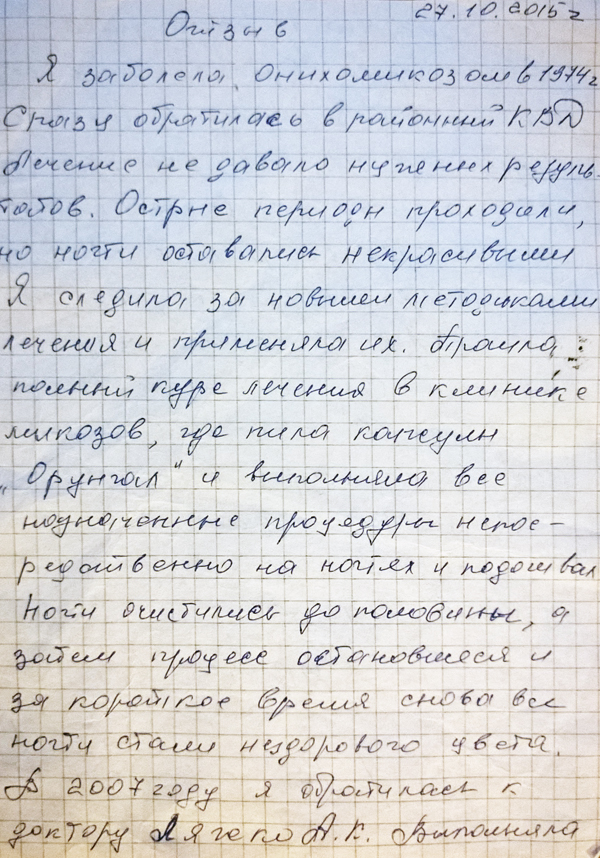 27.10.2015г
Отзыв
Я заболела онихомикозом в 1974г
Сразу обратилась в районный КВД
Лечение не давало нужных резуль-
татов. Острые периоды проходили,
но ногти оставались некрасивыми
Я следила за новыми методиками
лечения и применяла их. Прошла
полный курс лечения в клинике
микозов, где пила капсулы
„Орунгал" и выполняла все
назначенные процедуры непос-
редственно на ногтях и подошвах
Ногти очистились до половины, а
затем процесс остановился и
за короткое время снова все
ногти стали нездорового цвета.
В 2007 году я обратилась к
доктору А.К. Выполняла